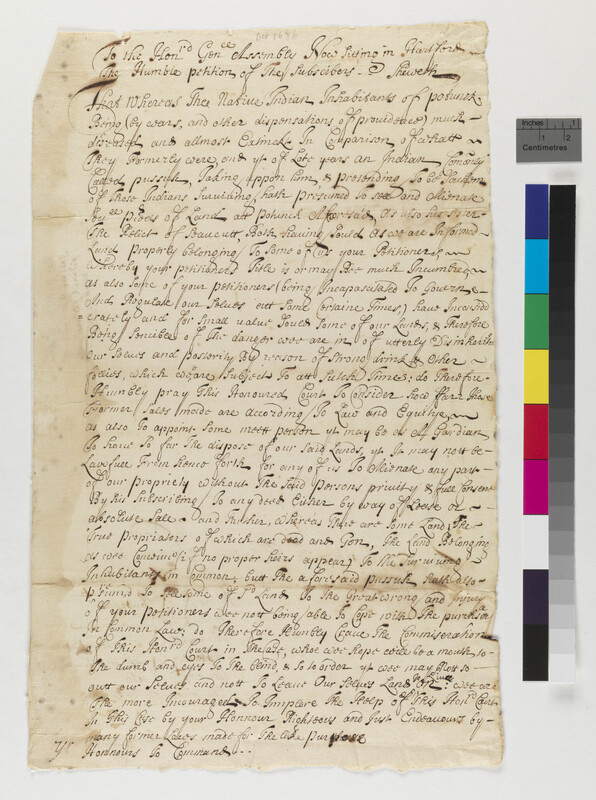 Oct 1696
To the Hon:rd Gen:ee Assembly Now Siting in Hartford
the Humble petition of The Subscibers - Sheweth
That Whereas Thee Native Indian Inhabitants of potunck
Being (by wars, and other dispensations of providence) much
diseased and allmost Extinckt In Comparison of whatt
They formerly were, and yt of Late years an Indian Comonly
Called pussuck, Taking uppon him, & pretending To be Sachem
of These Indians Surviving, hath presumed to sell and Alienate
pieces of Land att potunck Aforesaid, as also his Sister
The Relict of Both having Sould as we are Informed
Land properly belonging To Some of us your Petitioners,
whereby your petitioners Title is or may Bee much Incumbred
as also some of your petitioners (being Incapasitated To Govern
And Regulate our Selves att Some Certaine Times,) have Inconsid
erately and for Small value Sould Some of our Lands, & Therefore
Being Sencible of The danger wee are in of utterly Disinheriting
Our Selves and posterity By reason of Strong drink & Other
follies, which we are Subject To att Sutch Times; do Therefore
Humbly pray This Honoured Court To Consider how farr These
Former Sales made are according To Law and Equitye
as also To appoint Some meett person yt may be as A Gardian
To have So far The dispose of our Said Lands, yt It may nott be
Lawfull From hence forth for any of us To Alienate any part
of our propriety without The Said persons privity & full Consent
By his Subscribing To any deed Either by way of Lease or
absolute Sale - and Further, whereas There are Some Land The
True Propriators of which are dead and Gon, The Land Belonging
as wee Conceive (if no proper heirs appear) To the Surviving
Inhabitants in Common, butt The aforesaid pussuck hath also
p:sumd To sell some of sd Land To the Great wrong and Injury
of your petitioners wee nott being able To Cope with The purchasers
in Common Law, do Therefore Humbly Crave The Commiseration
of This Hon:rd Court in The Case, whoe wee hope will be a mouth to
the dumb and eyes To the blind, & So to order yt wee may Nott So
outt our Selves and nott To Leave Our Selves Land wee are
the more Incouraged To Implore the Help of This Hon:rd Court
In This Case by your Honnour Righteous and Just Endeavours by
many former Lawes made for The like purpose
Yrs Honnours To Command - -
Inches 1 2
Centimetres